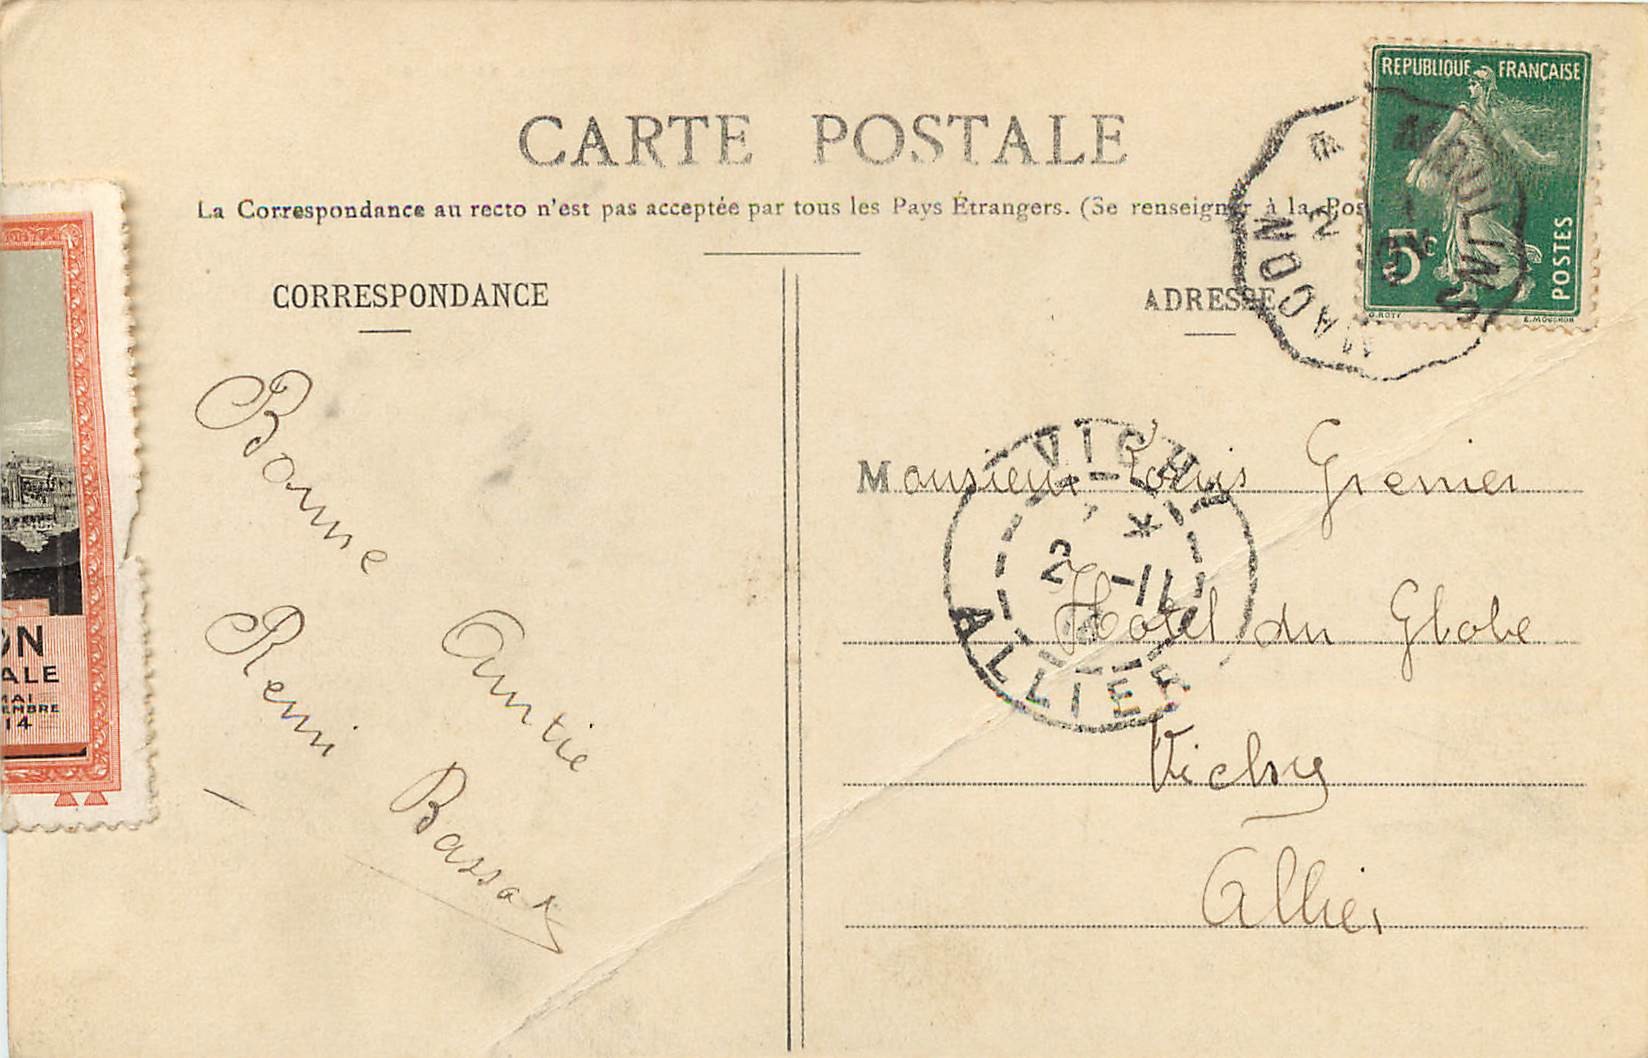 CARTE POSTALE
La Correspondance au recto n'est pas acceptée par tous les Pays Étrangers. (Se renseigner à la Pos
CORRESPONDANCE
ADRESSE
REPUBLIQUE FRANÇAISE
5c
POSTES
O. ROTY
E. MOUCHON
MOULINS
MACON
2
Bonne
Amitié
Remi
Bassot
Monsieur Louis Grenier
Hotel du Globe
Vichy
Allier
VICHY
*
2 -11
ALLIER
ON
ALE
MAI
EMBRE
14